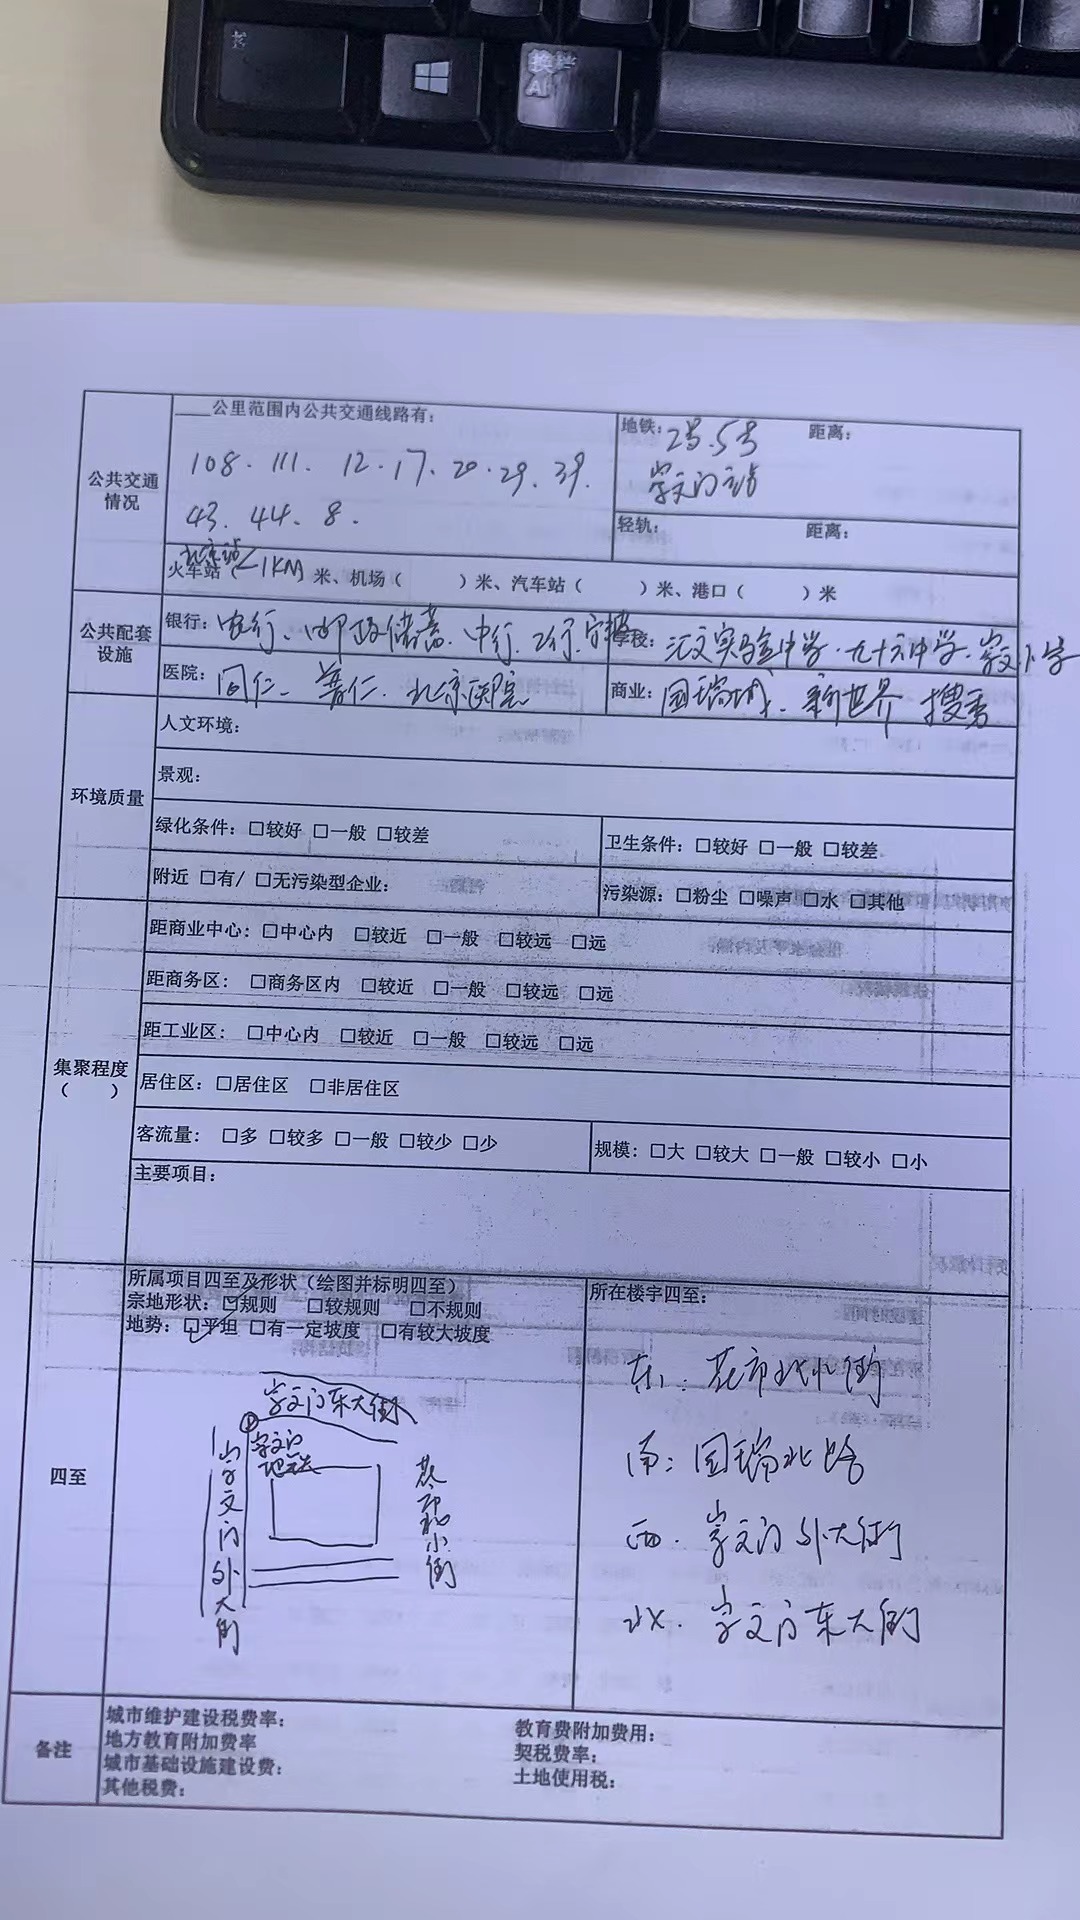 换挡
AI
____公里范围内公共交通线路有:
地铁: 2号.5号 距离:
崇文门站
公共交通
情况
108. 111. 12. 17. 20. 29. 39.
43. 44. 8.
轻轨: 距离:
北京站
火车站(<1KM)米、机场( )米、汽车站( )米、港口( )米
公共配套
设施
银行: 农行、邮政储蓄、中行、工行、
学校: 汇文实验中学、九十六中学、崇文小学
医院: 同仁、普仁、北京医院
商业: 国瑞城、新世界 搜秀
环境质量
人文环境:
景观:
绿化条件: □较好 □一般 □较差
卫生条件: □较好 □一般 □较差
附近 □有/ □无污染型企业:
污染源: □粉尘 □噪声 □水 □其他
集聚程度
( )
距商业中心: □中心内 □较近 □一般 □较远 □远
距商务区: □商务区内 □较近 □一般 □较远 □远
距工业区: □中心内 □较近 □一般 □较远 □远
居住区: □居住区 □非居住区
客流量: □多 □较多 □一般 □较少 □少
规模: □大 □较大 □一般 □较小 □小
主要项目:
四至
所属项目四至及形状(绘图并标明四至)
宗地形状: ☑规则 □较规则 □不规则
地势: ☑平坦 □有一定坡度 □有较大坡度
崇文门东大街
崇文门
地铁
崇文门外大街
花市北小街
所在楼宇四至:
东: 花市北小街
南: 国瑞北路
西. 崇文门外大街
北. 崇文门东大街
备注
城市维护建设税费率:
地方教育附加费率
城市基础设施建设费:
其他税费:
教育费附加费用:
契税费率:
土地使用税: